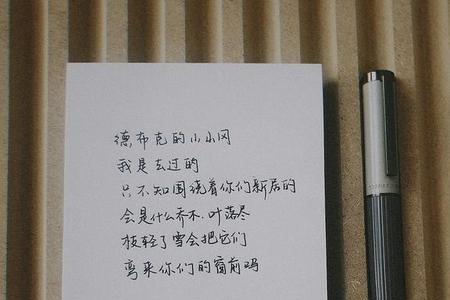 德布克的小山冈
我是去过的
只不知围绕着你们新居的
会是什么乔木.叶落尽
枝轻了雪会把它们
弯来你们的窗前吗